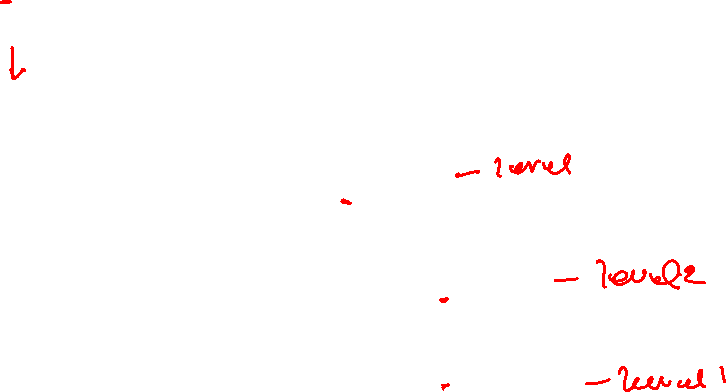 - level
- level2
- level 1